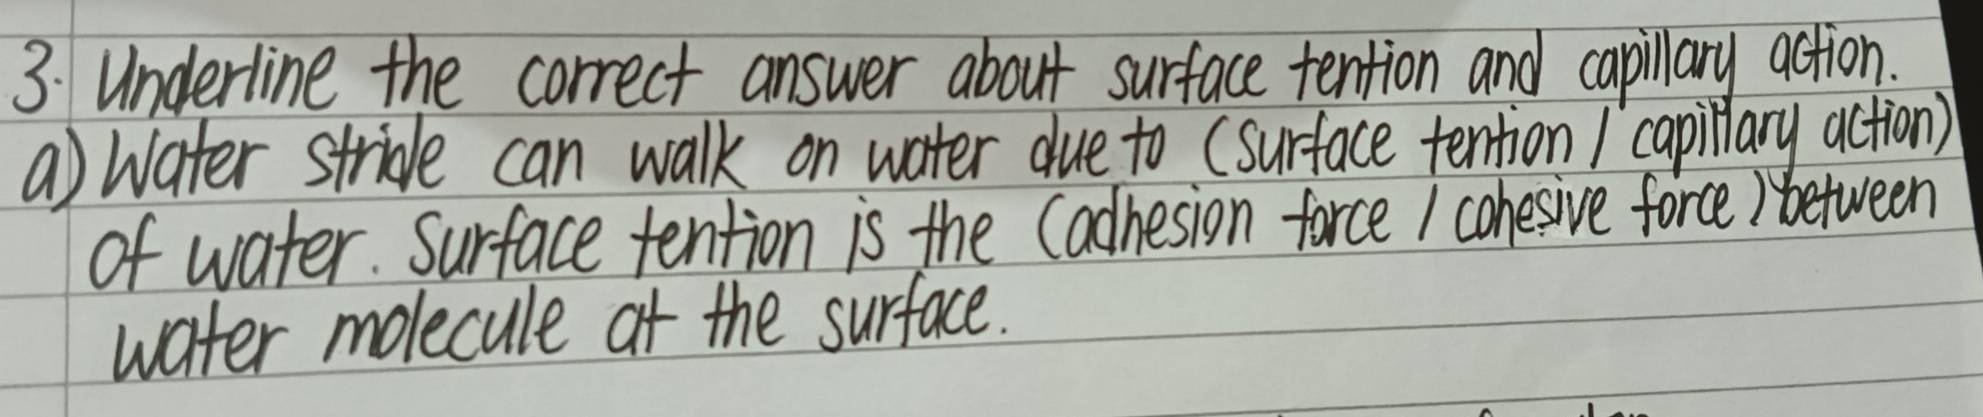 3. Underline the correct answer about surface tention and capillary action.
a) Water stride can walk on water due to (surface tention / capillary action)
of water. Surface tention is the (adhesion force / cohesive force) between
water molecule at the surface.